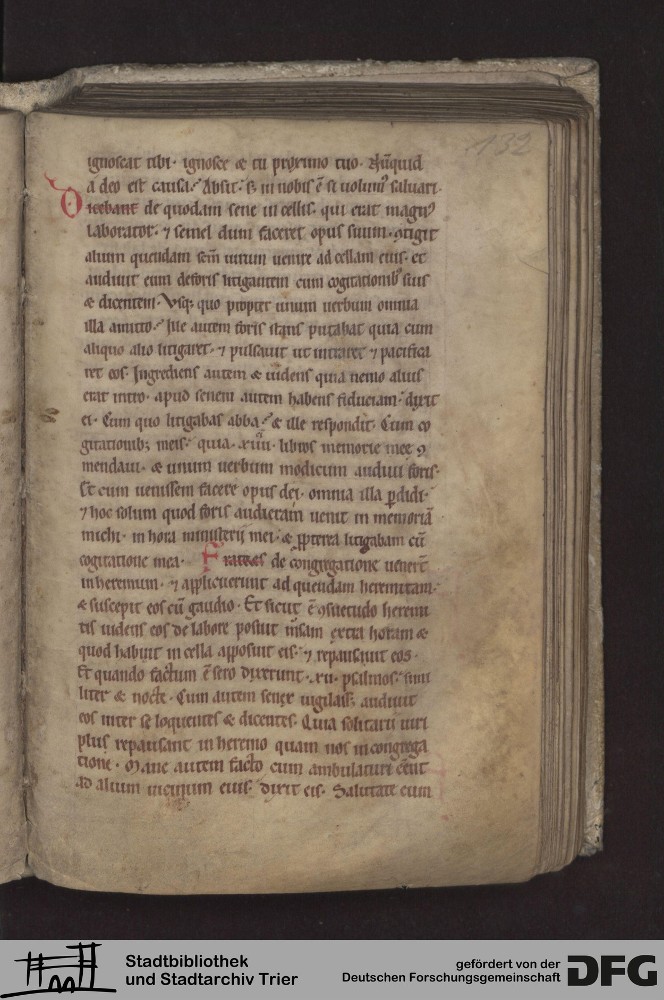 132
ignoscat tibi· ignosce & tu proximo tuo· Nūquid
a deo est causa? Absit· s; in nobis ē si uolum᷒ saluari·
Dicebant de quodam sene in cellis· qui erat magn᷒
laborator· ⁊ semel dum faceret opus suum· ꝯtigit
alium quendam sc̄m uirum uenire ad cellam eius· et
audiuit eum deforis litigantem cum cogitationib᷒ suis
& dicentem· Vsq; quo propter unum uerbum omnia
illa amitto? Ille autem foris stans putabat quia cum
aliquo alio litigaret· ⁊ pulsauit ut intraret ⁊ pacifica
ret eos· Ingrediens autem & uidens quia nemo alius
erat intro· apud senem autem habens fiduciam· dixit
ei· Cum quo litigabas abba? & ille respondit· Cum co
gitationib; meis· quia· xiiii· libros memorie mee ꝯ
mendaui· & unum uerbum modicum audiui foris·
Et cum uenissem facere opus dei· omnia illa ꝑdidi·
⁊ hoc solum quod foris audieram uenit in memoriā
michi· in hora ministerij mei· & ꝓpterea litigabam cū
cogitatione mea· Fratres de congregatione uenerūt
in heremum· ⁊ applicuerunt ad quendam heremitam·
& suscepit eos cū gaudio· Et sicut ē ꝯsuetudo heremi
tis uidens eos de labore posuit m̄sam extra horam &
quod habuit in cella apposuit eis· ⁊ repausauit eos·
Et quando factum ē sero dixerunt· xii· psalmos· simi
liter & nocte· Cum autem senex uigilass; audiuit
eos inter se loquentes & dicentes· Quia solitarij uiri
plus repausant in heremo quam nos in congrega
tione· Mane autem facto cum ambulaturi eēnt
ad alium uicinum eius· dixit eis· Salutate eum
Stadtbibliothek
und Stadtarchiv Trier
gefördert von der
Deutschen Forschungsgemeinschaft
DFG